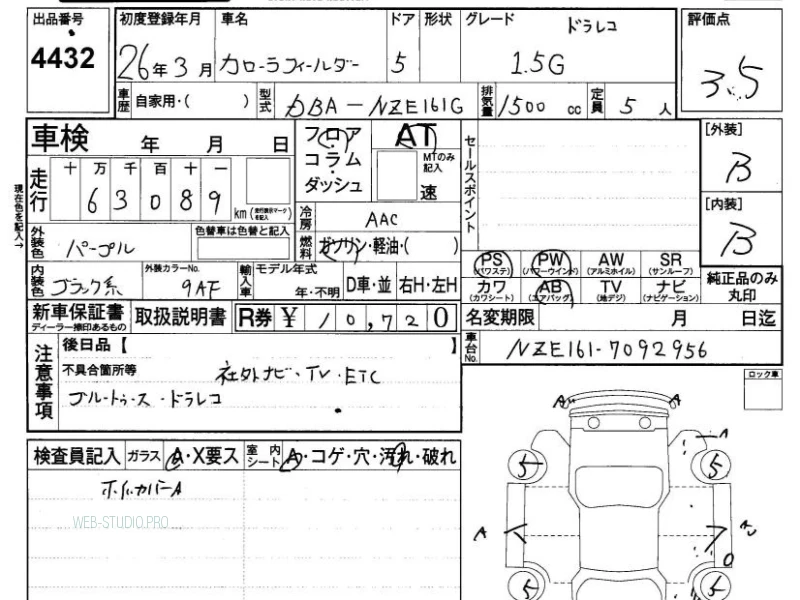 出品番号 4432
初度登録年月 26年3月
車名 カローラフィールダー
ドア 5
形状
グレード ドラレコ
1.5G
評価点 3.5
車歴 自家用・( )
型式 DBA-NZE161G
排気量 1500 cc
定員 5 人
車検 年 月 日
フロア
コラム
ダッシュ
AT
MTのみ記入
速
セールスポイント
[外装]
B
[内装]
B
走行
十 万 千 百 十 一
6 3 0 8 9 km
現在色を記入→
外装色 パープル
色替車は色替と記入
冷房 AAC
燃料 ガソリン・軽油・( )
PS (パワステ)
PW (パワーウインド)
AW (アルミホイル)
SR (サンルーフ)
カワ (カワシート)
AB (エアバッグ)
TV (地デジ)
ナビ (ナビゲーション)
純正品のみ丸印
内装色 ブラック系
外装カラーNo. 9AF
輸入車
モデル年式 年・不明
D車・並
右H・左H
新車保証書
ディーラー捺印あるもの
取扱説明書
R券 ¥ 10,720
名変期限 月 日迄
車台No. NZE161-7092956
注意事項
後日品【 】
不具合箇所等 社外ナビ・TV・ETC
ブルートゥース・ドラレコ
ロック車
検査員記入
ガラス A・X要ス
室内シート A・コゲ・穴・汚れ・破れ
ホイルカバーA
WEB-STUDIO.PRO
A A
A
5 5
A
5 5